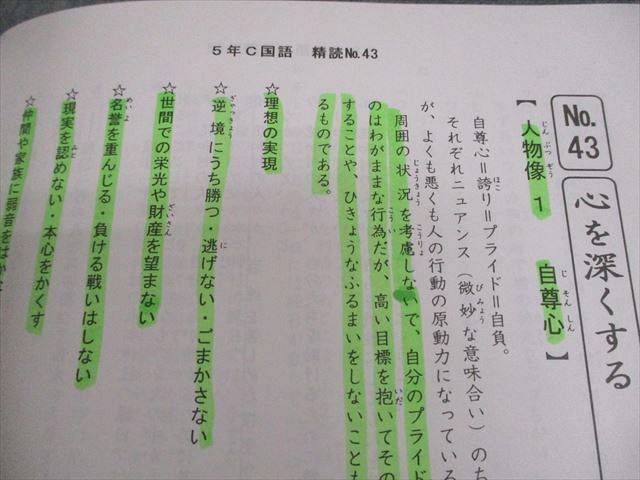 5年C国語 精読No.43
No.43
心を深くする
【人物像1 自尊心】
自尊心＝誇り＝プライド＝自負。
それぞれニュアンス（微妙な意味合い）のち
が、よくも悪くも人の行動の原動力になっている
周囲の状況を考慮しないで、自分のプライド
のはわがままな行為だが、高い目標を抱いてその
することや、ひきょうなふるまいをしないことも
るものである。
☆理想の実現
☆逆境にうち勝つ・逃げない・ごまかさない
☆世間での栄光や財産を望まない
☆名誉を重んじる・負ける戦いはしない
☆現実を認めない・本心をかくす
☆仲間や家族に弱音をはか